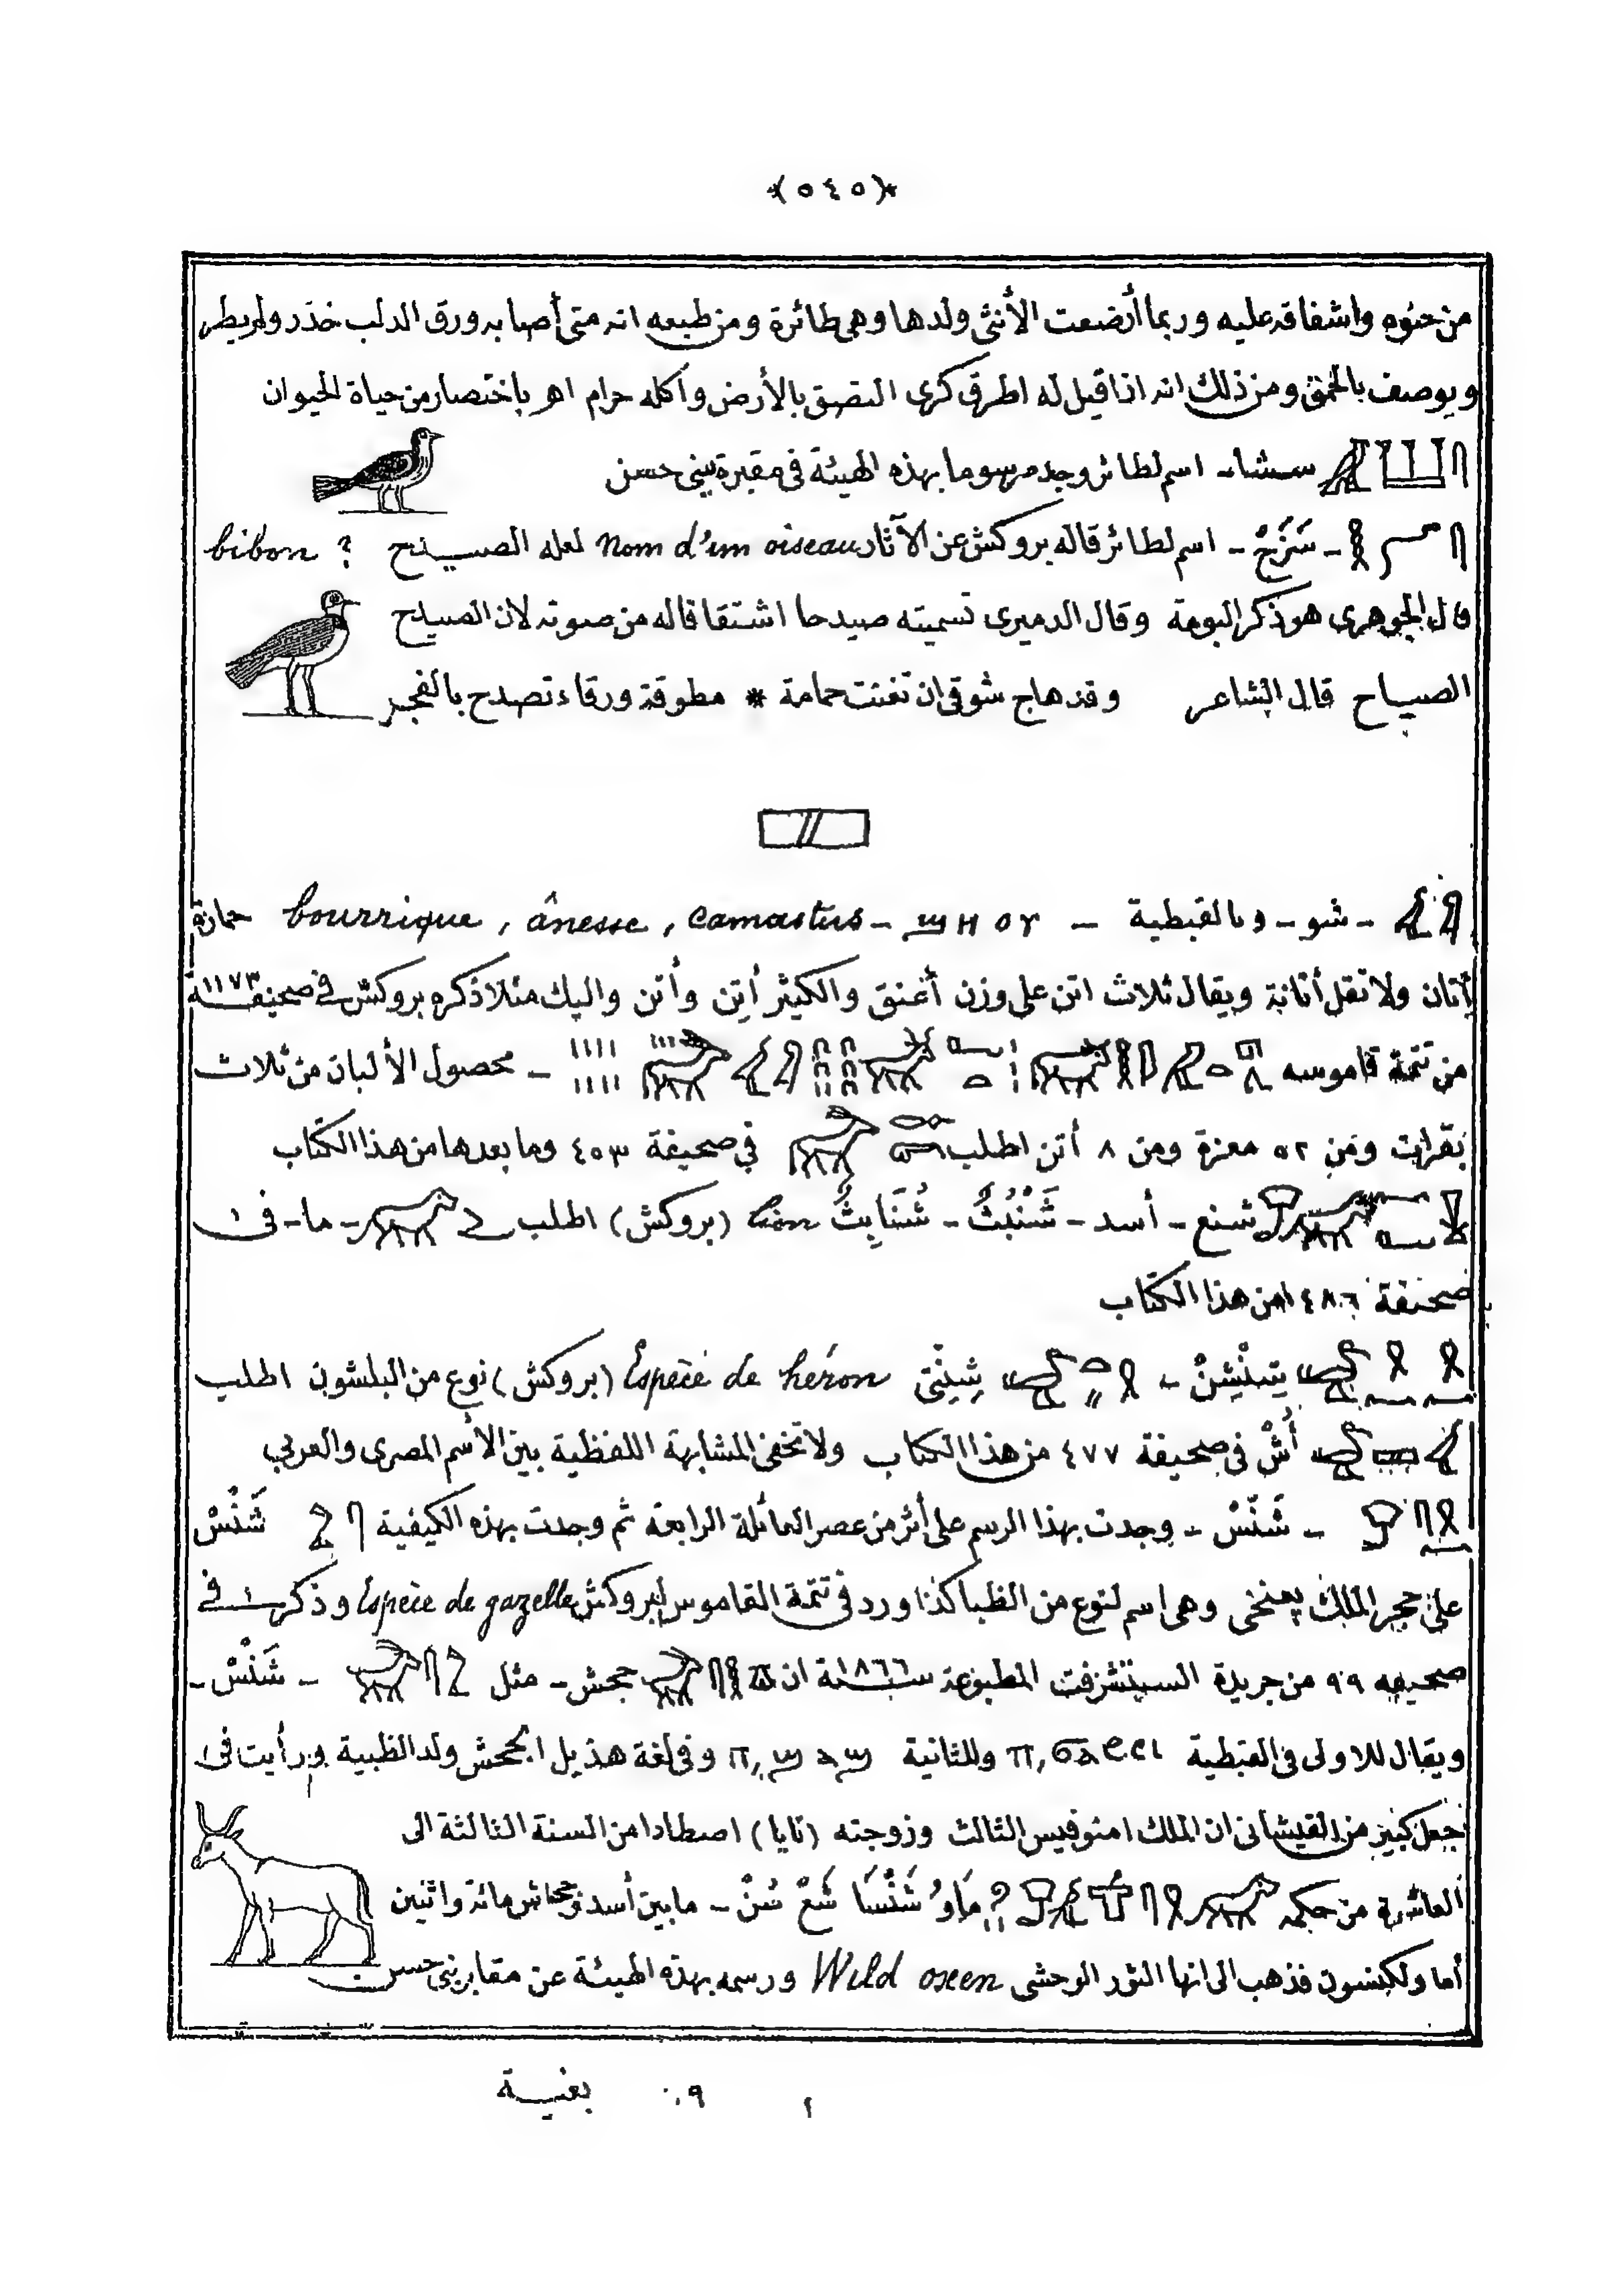 ﴿٥٤٥﴾
من حنوه واشفاقه عليه وربما أرضعت الأنثى ولدها وهى طائرة ومن طبعه انه متى أصابه ورق الدلب خذر ولم يطر
ويوصف بالحمق ومن ذلك انه اذا قيل له اطرق كرى التصق بالأرض وأكله حرام اهـ باختصار من حياة الحيوان
سشا - اسم لطائر وجد مرسوما بهذه الهيئة فى مقبرة ببنى حسن
- اسم لطائر قاله بروكش عن الآثار nom d'un oiseau لعله الصيدح ? bibon
قال الجوهرى هو ذكر البومة وقال الدميرى تسميته صيدحا اشتقاقا له من صوته لان الصيدح
الصياح قال الشاعر وقد هاج شوقى ان تغنت حمامة * مطوقة ورقاء تصدح بالفجر
- شو - وبالقبطية - bourrique, ânesse, camastus - حمارة
أتان ولا تقل أتانة ويقال ثلاث اتن على وزن أعنق والكثير أتن وأتن واليك مثلا ذكره بروكش فى صحيفة ١١٧٣
من تتمة قاموسه - محصول الألبان من ثلاث
بقرات ومن ٥٢ معزة ومن ٨ أتن اطلب فى صحيفة ٤٥٣ وما بعدها من هذا الكتاب
شنع - أسد - شَنْبُثٌ - شُنَابِثٌ lion (بروكش) اطلب - ما - فى
صحيفة ٤٨٦ من هذا الكتاب
Espèce de héron (بروكش) نوع من البلشون اطلب
أُشْ فى صحيفة ٤٧٧ من هذا الكتاب ولا تخفى المشابهة اللفظية بين الاسم المصرى والعربى
- شَنّسْ - وجدت بهذا الرسم على أثر من عصر العائلة الرابعة ثم وجدت بهذه الكيفية شَنْسْ
على حجر الملك بعنخى وهى اسم لنوع من الظبا كذا ورد فى تتمة القاموس لبروكش Espèce de gazelle وذكر فى
صحيفه ٩٩ من جريدة السيتشرفت المطبوعة سنة ١٨٦٦ ان جحش - مثل - شَنْسْ -
ويقال للاولى فى القبطية وللثانية وفى لغة هذيل الجحش ولد الظبية ورأيت فى
جعل كبير من القيشانى ان الملك امنوفيس الثالث وزوجته (تايا) اصطادا من السنة الثالثة الى
العاشرة من حكمه مَاوُ شَنْسَا شَعْ سُنْ - ما بين أسد وجحاش مائة واثنين
أما ولكنسون فذهب الى انها الثور الوحشى Wild oxen ورسمه بهذه الهيئة عن مقابر بنى حسن
بغية